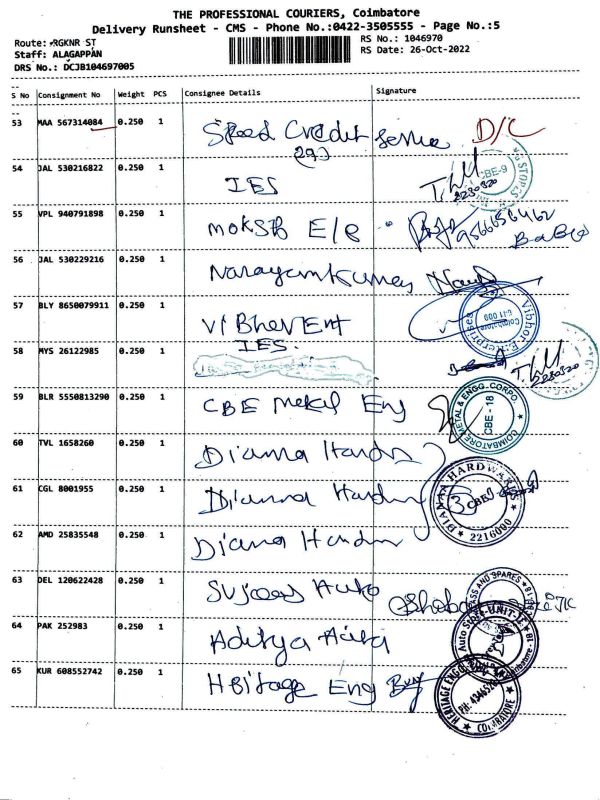 THE PROFESSIONAL COURIERS, Coimbatore
Delivery Runsheet - CMS - Phone No.:0422-3505555 - Page No.:5
Route: RGKNR ST RS No.: 1046970
Staff: ALAGAPPAN RS Date: 26-Oct-2022
DRS No.: DCJB104697005
S No Consignment No Weight PCS Consignee Details Signature
53 MAA 567314084 0.250 1 Speed Credit Service D/C
54 JAL 530216822 0.250 1 IES 2230320 CBE-9
55 VPL 940791898 0.250 1 moksh E/e Babu
56 JAL 530229216 0.250 1 Narayankumar
57 BLY 8650079911 0.250 1 VIBhor Ent Vibhor Enterprises Coimbatore 641 009
58 MYS 26122985 0.250 1 IES. 2230320
59 BLR 5550813290 0.250 1 CBE Metal Eng COIMBATORE METAL & ENGG. CORPO. CBE - 18
60 TVL 1658260 0.250 1 Dianna Hardw
61 CGL 8001955 0.250 1 Dianna Hardw DIANAA HARDWARE CBE 2216000
62 AMD 25835548 0.250 1 Diana Hardw
63 DEL 120622428 0.250 1 Auto
64 PAK 252983 0.250 1 Aditya Auto AND SPARES
65 KUR 608552742 0.250 1 Heitage Eng HERITAGE ENGG COIMBATORE